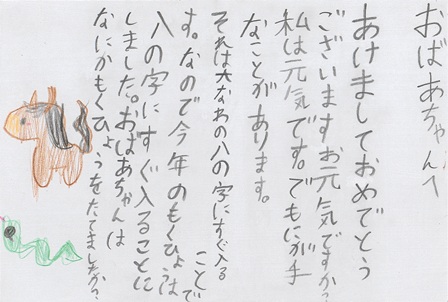 おばあちゃんへ
あけましておめでとう
ございますお元気ですか?
私は元気です。でもにが手
なことがあります。
それは大なわの八の字にすぐ入る
ことで
す。なので今年のもくひょうは
八の字にすぐ入ることに
しました。おばあちゃんは
なにかもくひょうをたてましたか?